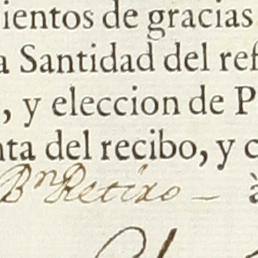 ientos de gracias
a Santidad del ref
, y eleccion de P
nta del recibo, y c
Bn Retiro — à